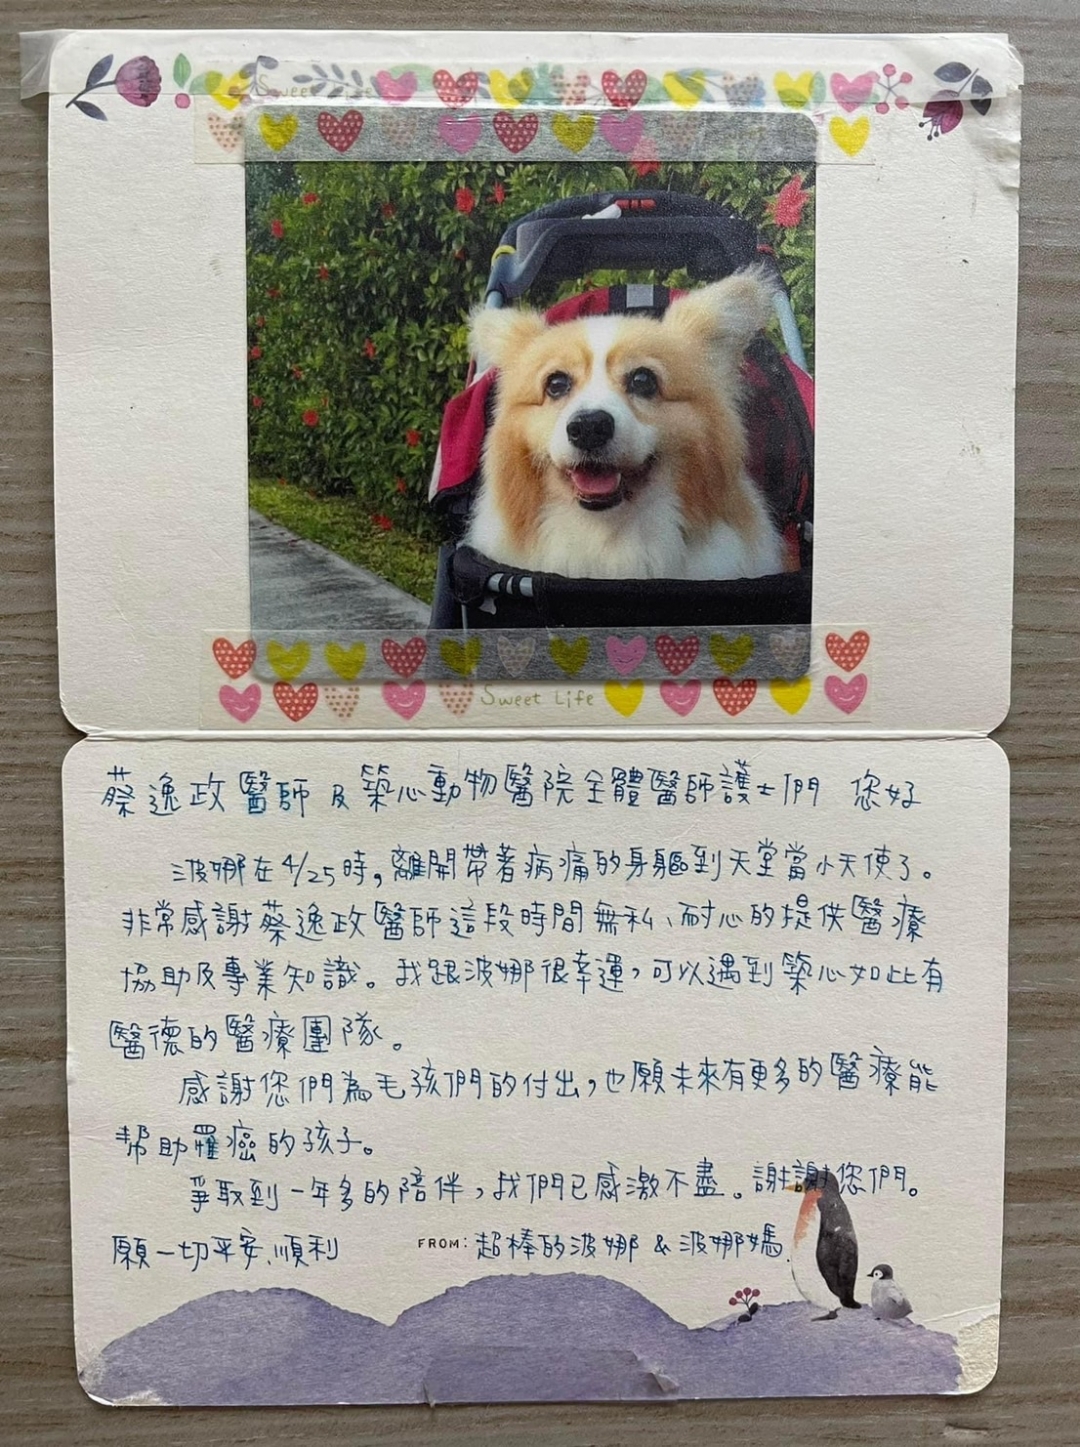 Sweet Life
Sweet Life
蔡逸政醫師 及 築心動物醫院全體醫師護士們 您好
波娜在4/25時,離開帶著病痛的身軀到天堂當小天使了。
非常感謝蔡逸政醫師這段時間無私、耐心的提供醫療
協助及專業知識。我跟波娜很幸運,可以遇到築心如此有
醫德的醫療團隊。
感謝您們為毛孩們的付出,也願未來有更多的醫療能
幫助罹癌的孩子。
爭取到一年多的陪伴,我們已感激不盡。謝謝您們。
願一切平安、順利
FROM: 超棒的波娜 & 波娜媽